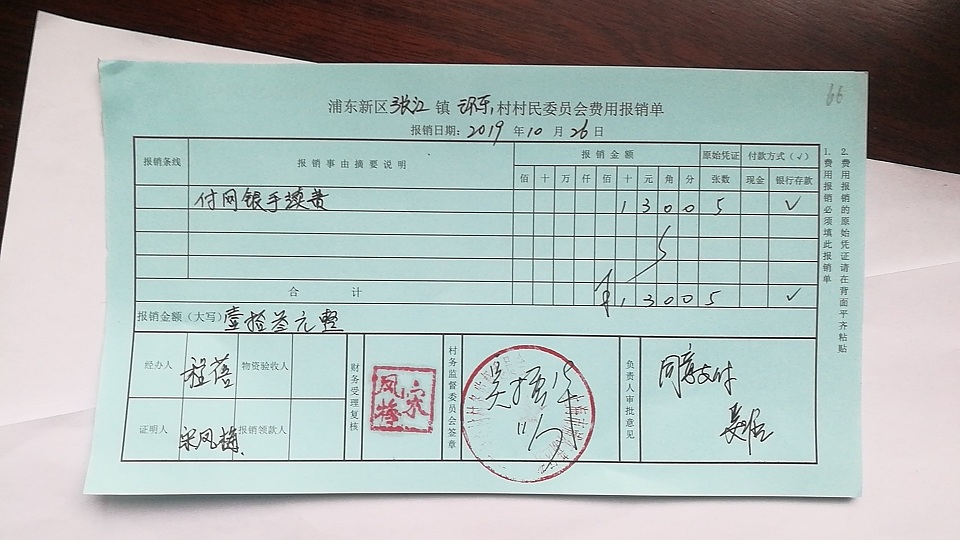 66
浦东新区张江镇 村村民委员会费用报销单
报销日期：2019年10月26日
报销条线 报销事由摘要说明 报销金额 原始凭证 付款方式（√）
佰 十 万 仟 佰 十 元 角 分 张数 现金 银行存款
付网银手续费 1 3 0 0 5 √
合计 ¥ 1 3 0 0 5 √
报销金额（大写）壹拾叁元整
经办人 程蓓 物资验收人
证明人 宋凤梅 报销领款人
财务受理复核
宋凤梅
村务监督委员会签章
负责人审批意见
同意支付
1.费用报销必须填此报销单
2.费用报销的原始凭证请在背面平齐粘贴